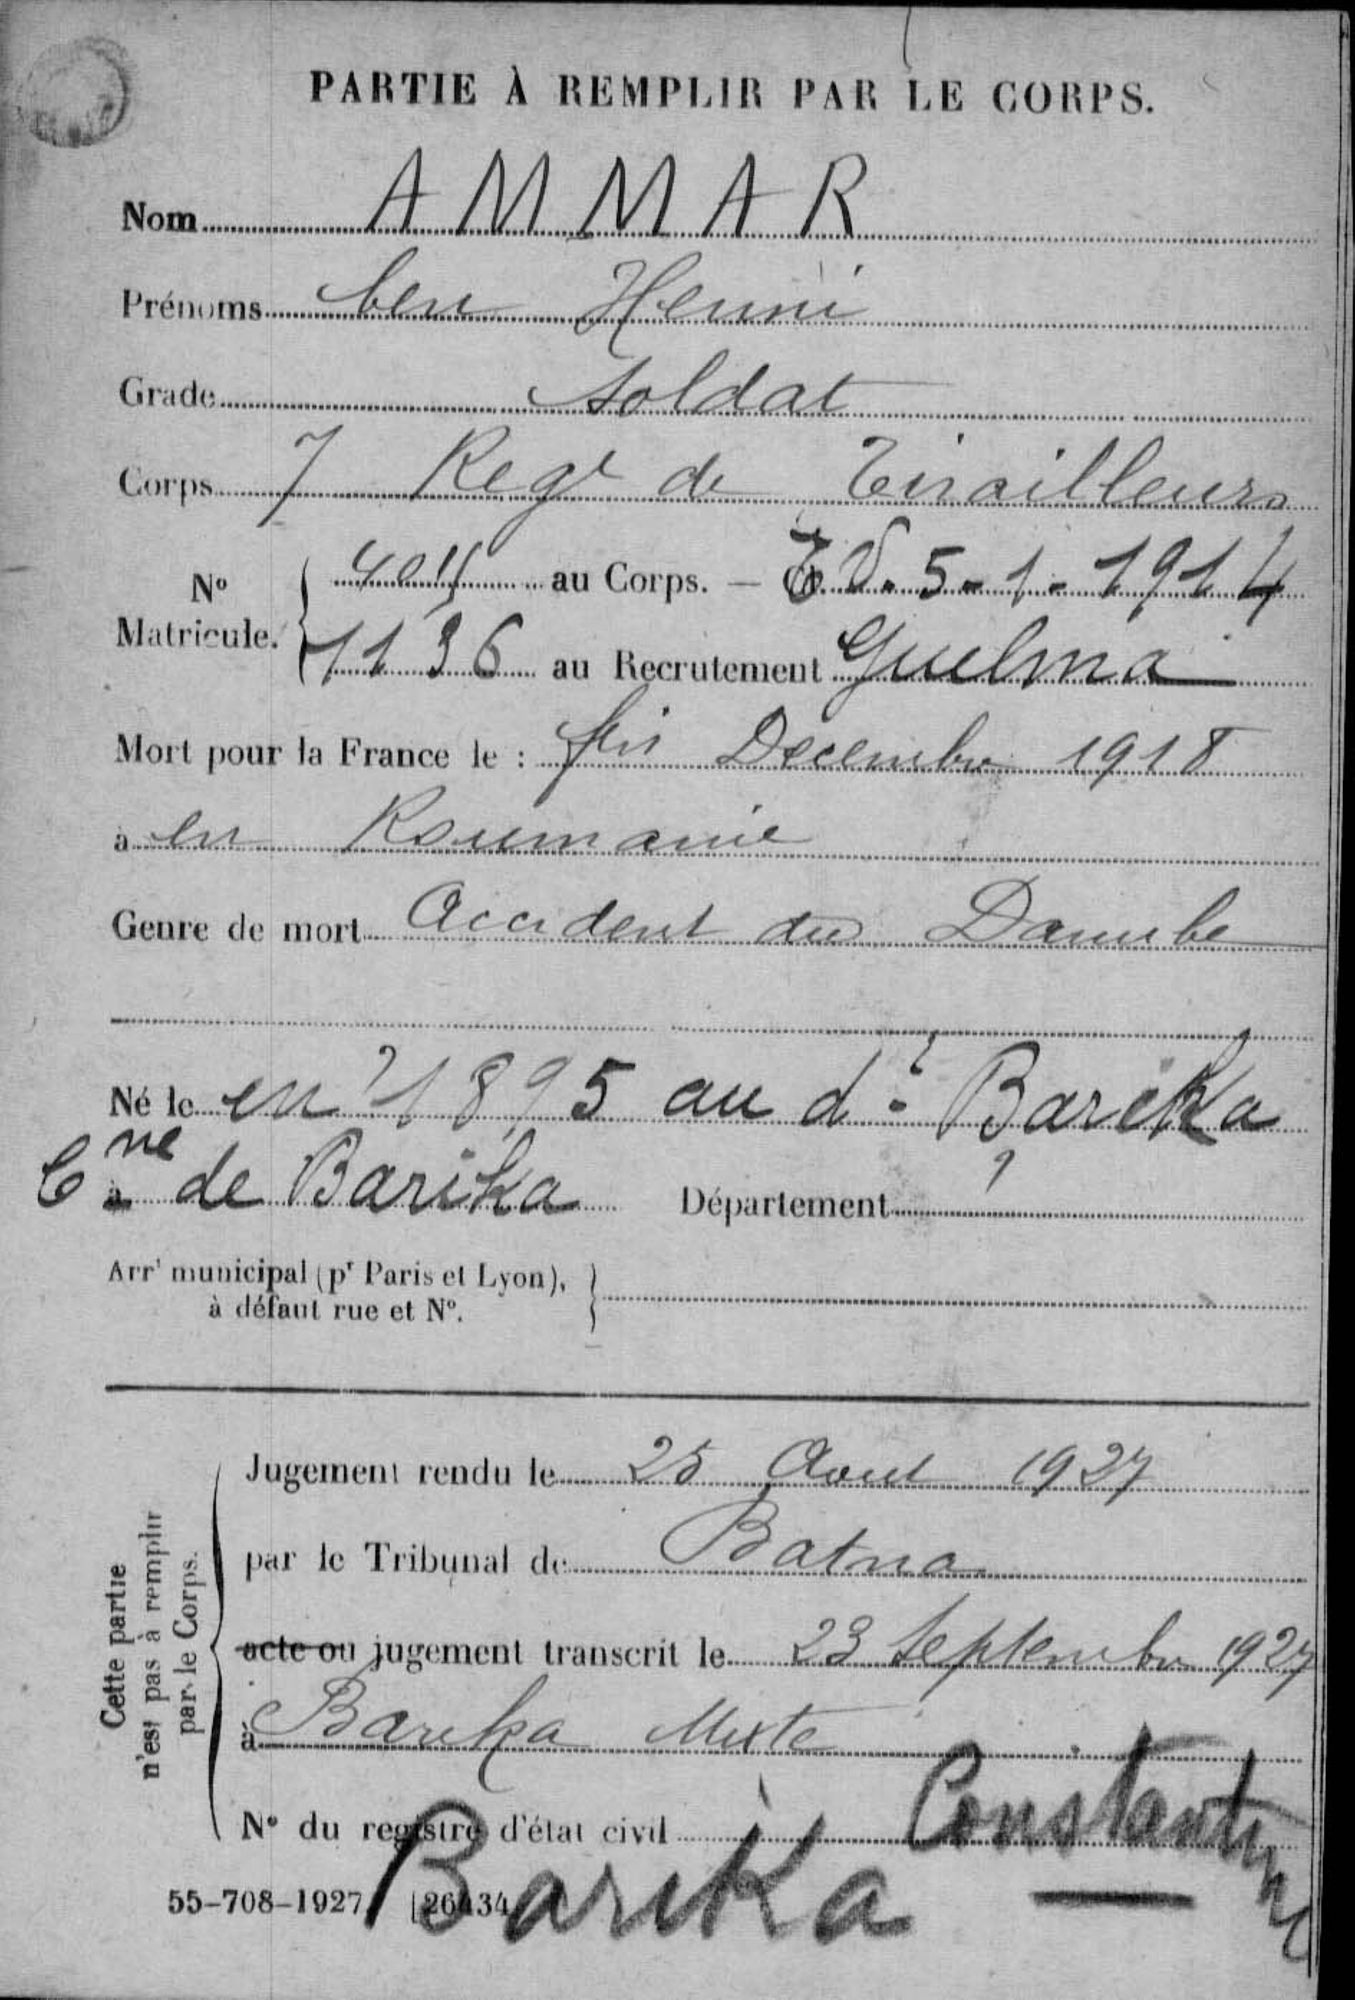 PARTIE À REMPLIR PAR LE CORPS.
Nom AMMAR
Prénoms ben Henni
Grade Soldat
Corps 7 Regt de Tirailleurs
No Matricule. { au Corps. — E V. 5-1-1914
1136 au Recrutement Guelma
Mort pour la France le : fin Décembre 1918
à en Roumanie
Genre de mort Accident du Danube
Né le en 1895 au dr Barika
Cne à de Barika Département
Arrt municipal (pr Paris et Lyon), à défaut rue et No. }
Cette partie n'est pas à remplir par le Corps.
Jugement rendu le 25 Aout 1927
par le Tribunal de Batna
acte ou jugement transcrit le 23 Septembre 1927
à Barika Mixte
No du registre d'état civil Constantine
Barika
55-708-1927. [26434]